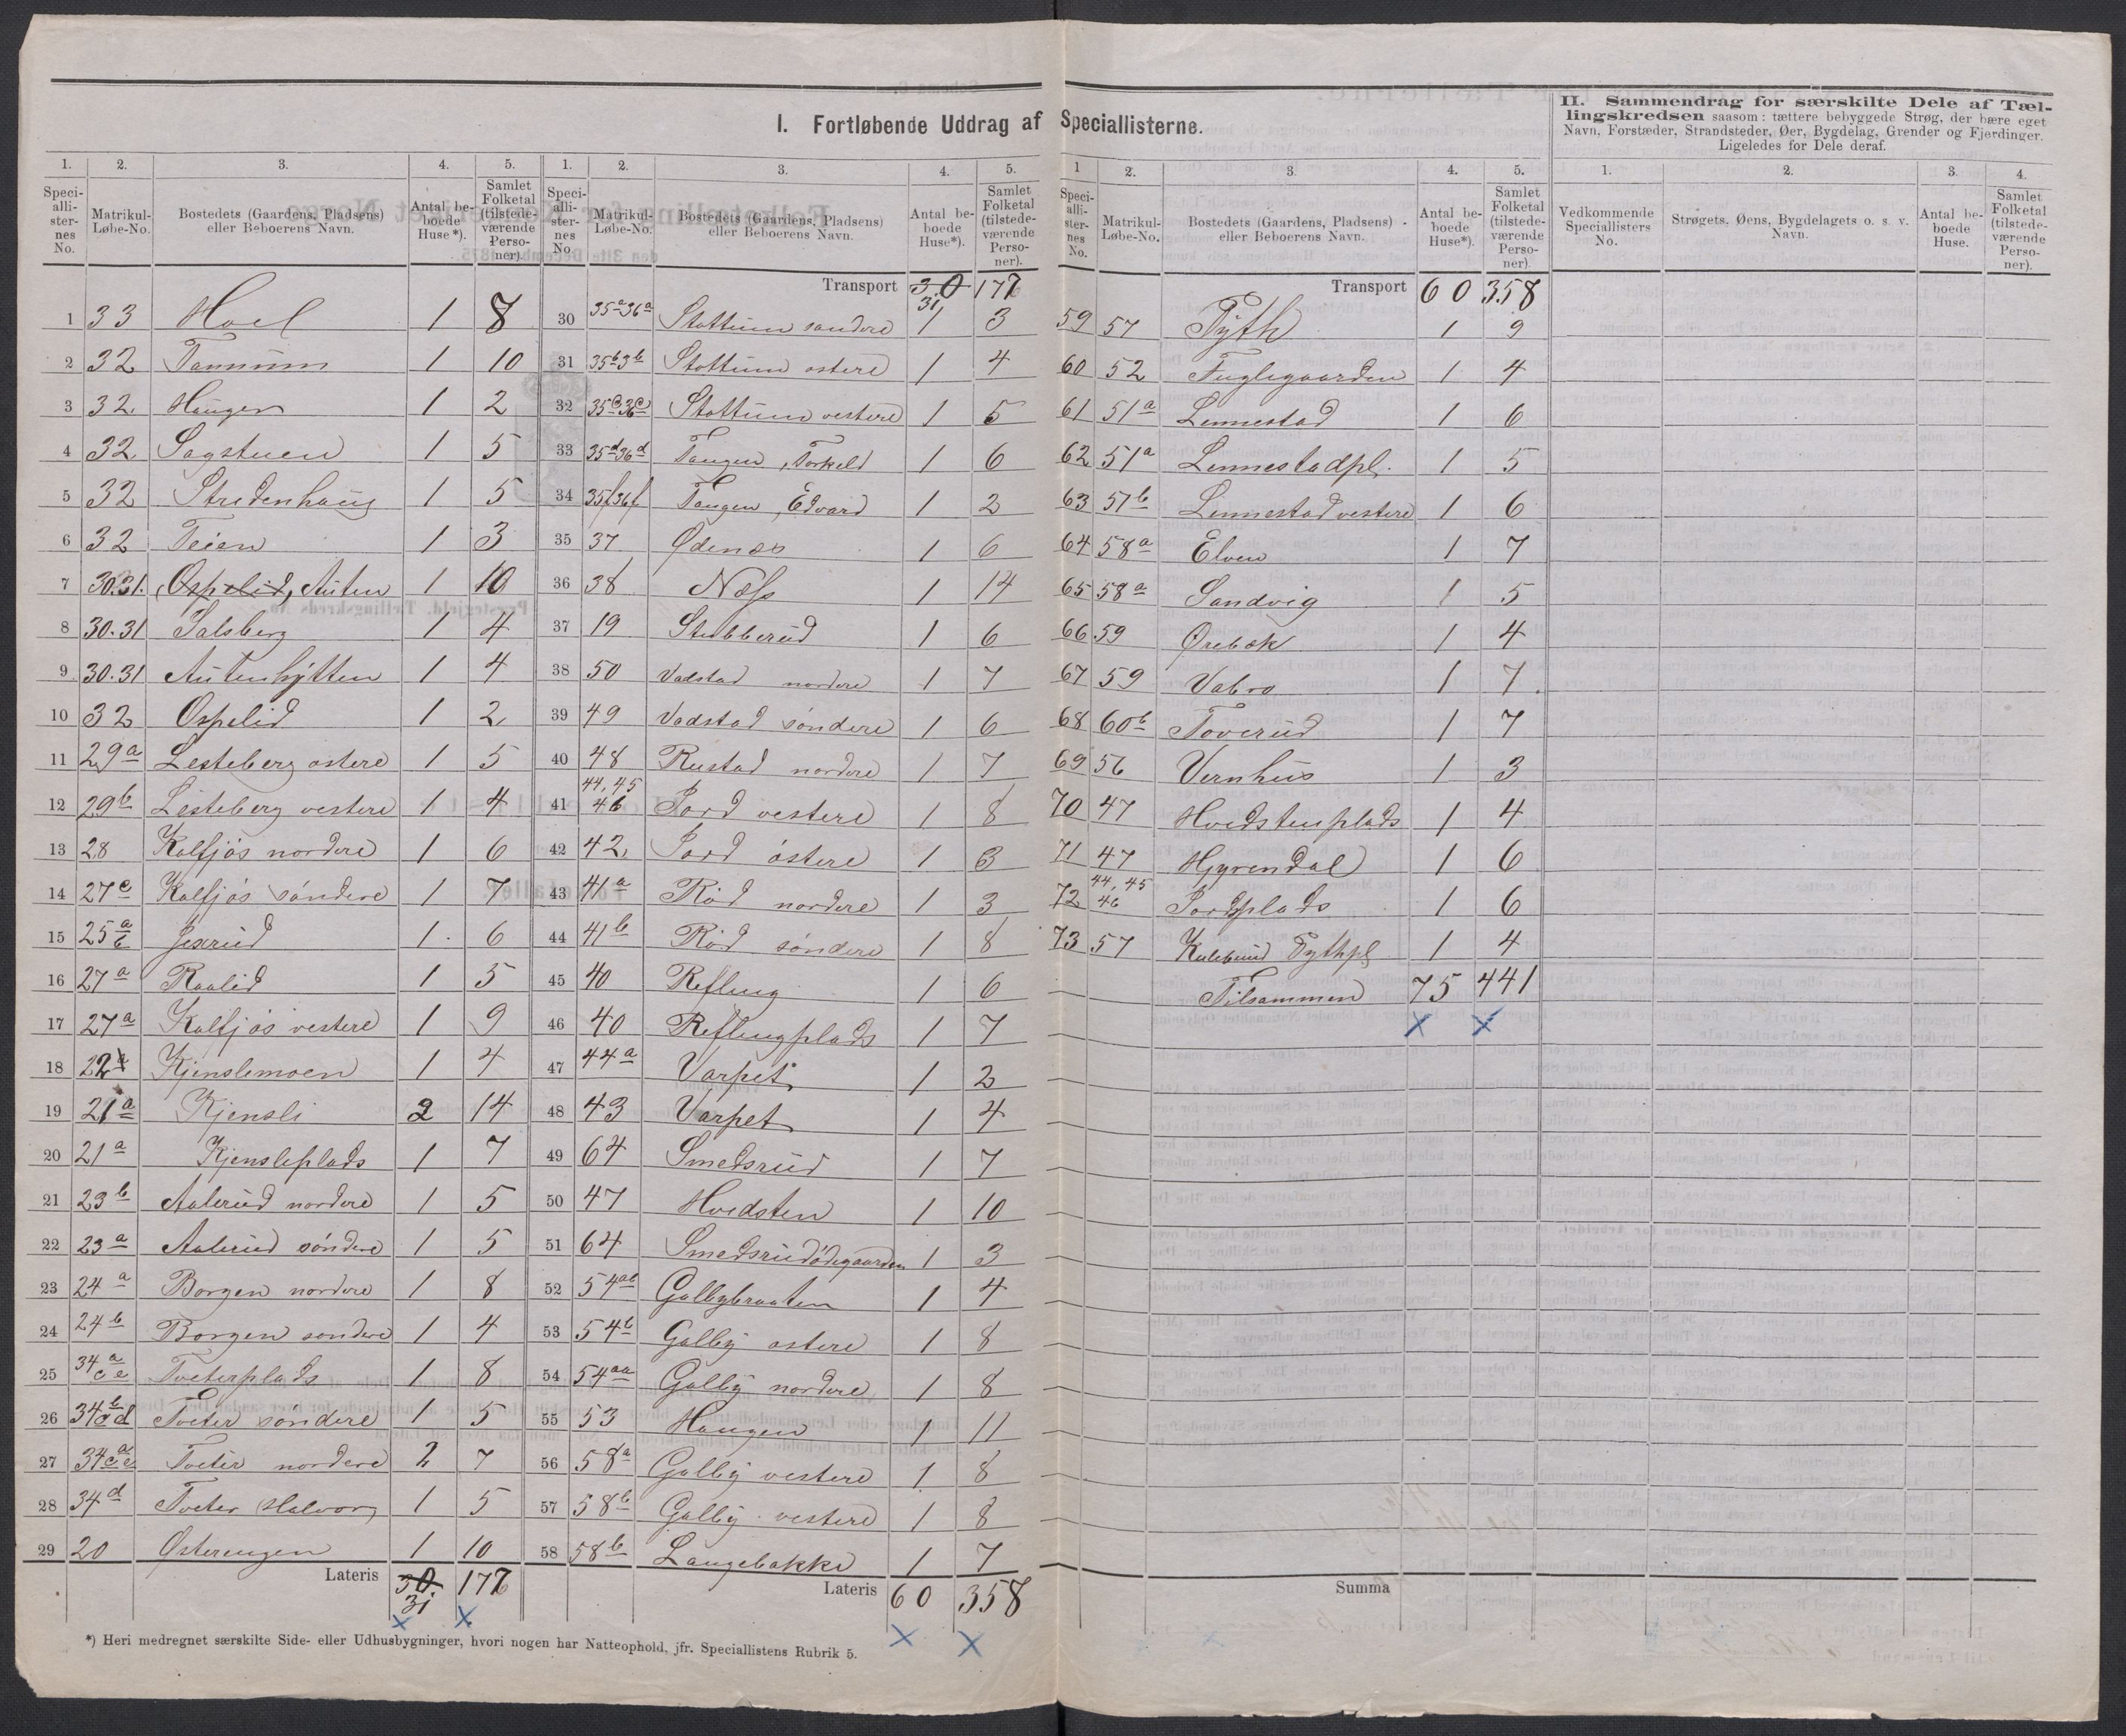 I. Fortløbende Uddrag af Speciallisterne.
II. Sammendrag for særskilte Dele af Tællingskredsen saasom: tættere bebyggede Strøg, der bære eget
Navn, Forstæder, Strandsteder, Øer, Bygdelag, Grender og Fjerdinger.
Ligeledes for Dele deraf.
1. 2. 3. 4. 5.
Speciallisternes No. Matrikul-Løbe-No. Bostedets (Gaardens, Pladsens) eller Beboerens Navn. Antal beboede Huse*). Samlet Folketal (tilstedeværende Personer).
1 33 Hoel 1 8
2 32 Tannum 1 10
3 32 Haugen 1 2
4 32 Sagstuen 1 5
5 32 Stredenhaug 1 5
6 32 Teien 1 3
7 30.31. Ospelid, Auten 1 10
8 30.31 Salsberg 1 4
9 30.31 Autenhytten 1 4
10 32 Ospelid 1 2
11 29a Lesteberg østere 1 5
12 29b Lesteberg vestere 1 4
13 28 Kolfjøs nordere 1 6
14 27c Kolfjøs søndere 1 7
15 25a b Jexrud 1 6
16 27a Raalid 1 5
17 27a Kolfjøs vestere 1 9
18 Kjenslemoen 1 4
19 21a Kjensli 2 14
20 21a Kjensleplads 1 7
21 23b Aalerud nordere 1 5
22 23a Aalerud søndere 1 5
23 24a Borgen nordere 1 8
24 24b Borgen søndere 1 4
25 34a c e Tveterplads 1 8
26 34b d Tveter søndere 1 5
27 34a c e Tveter nordere 2 7
28 34d Tveter Halvor 1 5
29 20 Østerengen 1 10
Lateris 30. 31. 177
1. 2. 3. 4. 5.
Speciallisternes No. Matrikul-Løbe-No. Bostedets (Gaardens, Pladsens) eller Beboerens Navn. Antal beboede Huse*). Samlet Folketal (tilstedeværende Personer).
Transport 30 31 177
30 35a 36a Stottum søndere 1 3
31 35b 3b Stottum østere 1 4
32 35c 36c Stottum vestere 1 5
33 35d 36d Tangen, Torkeld 1 6
34 35f 36f Tangen, Edvard 1 2
35 37 Ødenæs 1 6
36 38 Næss 1 14
37 19 Stubberud 1 6
38 50 Vadstad nordere 1 7
39 49 Vadstad søndere 1 6
40 48 Rustad nordere 1 7
41 44, 45 46 Jord vestere 1 8
42 42 Jord østere 1 3
43 41a Rød nordere 1 3
44 41b Rød søndere 1 8
45 40 Refling 1 6
46 40 Reflingplads 1 7
47 44a Varpet 1 2
48 43 Varpet 1 4
49 64 Smedsrud 1 7
50 47 Hvidsten 1 10
51 64 Smedsrudødegaarden 1 3
52 54ab Galbybraaten 1 4
53 54b Galby østere 1 8
54 54aa Galby nordere 1 8
55 53 Haugen 1 11
56 58a Galby vestere 1 8
57 58b Galby vestere 1 8
58 58b Langebakke 1 7
Lateris 60 358
1 2. 3. 4. 5.
Speciallisternes No. Matrikul-Løbe-No. Bostedets (Gaardens, Pladsens) eller Beboerens Navn. Antal beboede Huse*). Samlet Folketal (tilstedeværende Personer).
Transport 60 358
59 57 Pyth 1 9
60 52 Fuglegaarden 1 4
61 51a Lennestad 1 6
62 51a Lennestadpl. 1 5
63 51b Lennestad vestere 1 6
64 58a Elven 1 7
65 58a Sandvig 1 5
66 59 Ørebæk 1 4
67 59 Vabro 1 7
68 60b Toverud 1 7
69 56 Vernhus 1 3
70 47 Hvidstenplads 1 4
71 47 Hyrendal 1 6
72 44, 45 46 Jordplads 1 6
73 57 Pythpl 1 4
Tilsammen 75 441
Summa
1. 2. 3. 4.
Vedkommende Speciallisters No. Strøgets, Øens, Bygdelagets o. s. v. Navn. Antal beboede Huse. Samlet Folketal (tilstedeværende Personer).
*) Heri medregnet særskilte Side- eller Udhusbygninger, hvori nogen har Natteophold, jfr. Speciallistens Rubrik 5.